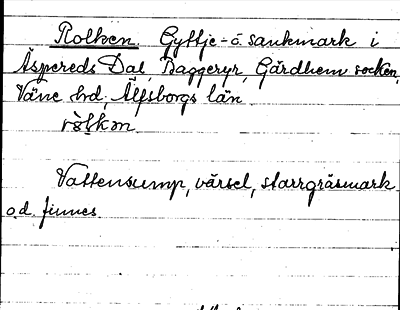 Rolken. Gyttje- o. sankmark i
Äspereds Dal, Baggeryr, Gärdhem socken,
Väne hd, Älfsborgs län
rɔ̀lkən
Vattensump, värsel, starrgräsmark
o.d. finnes.